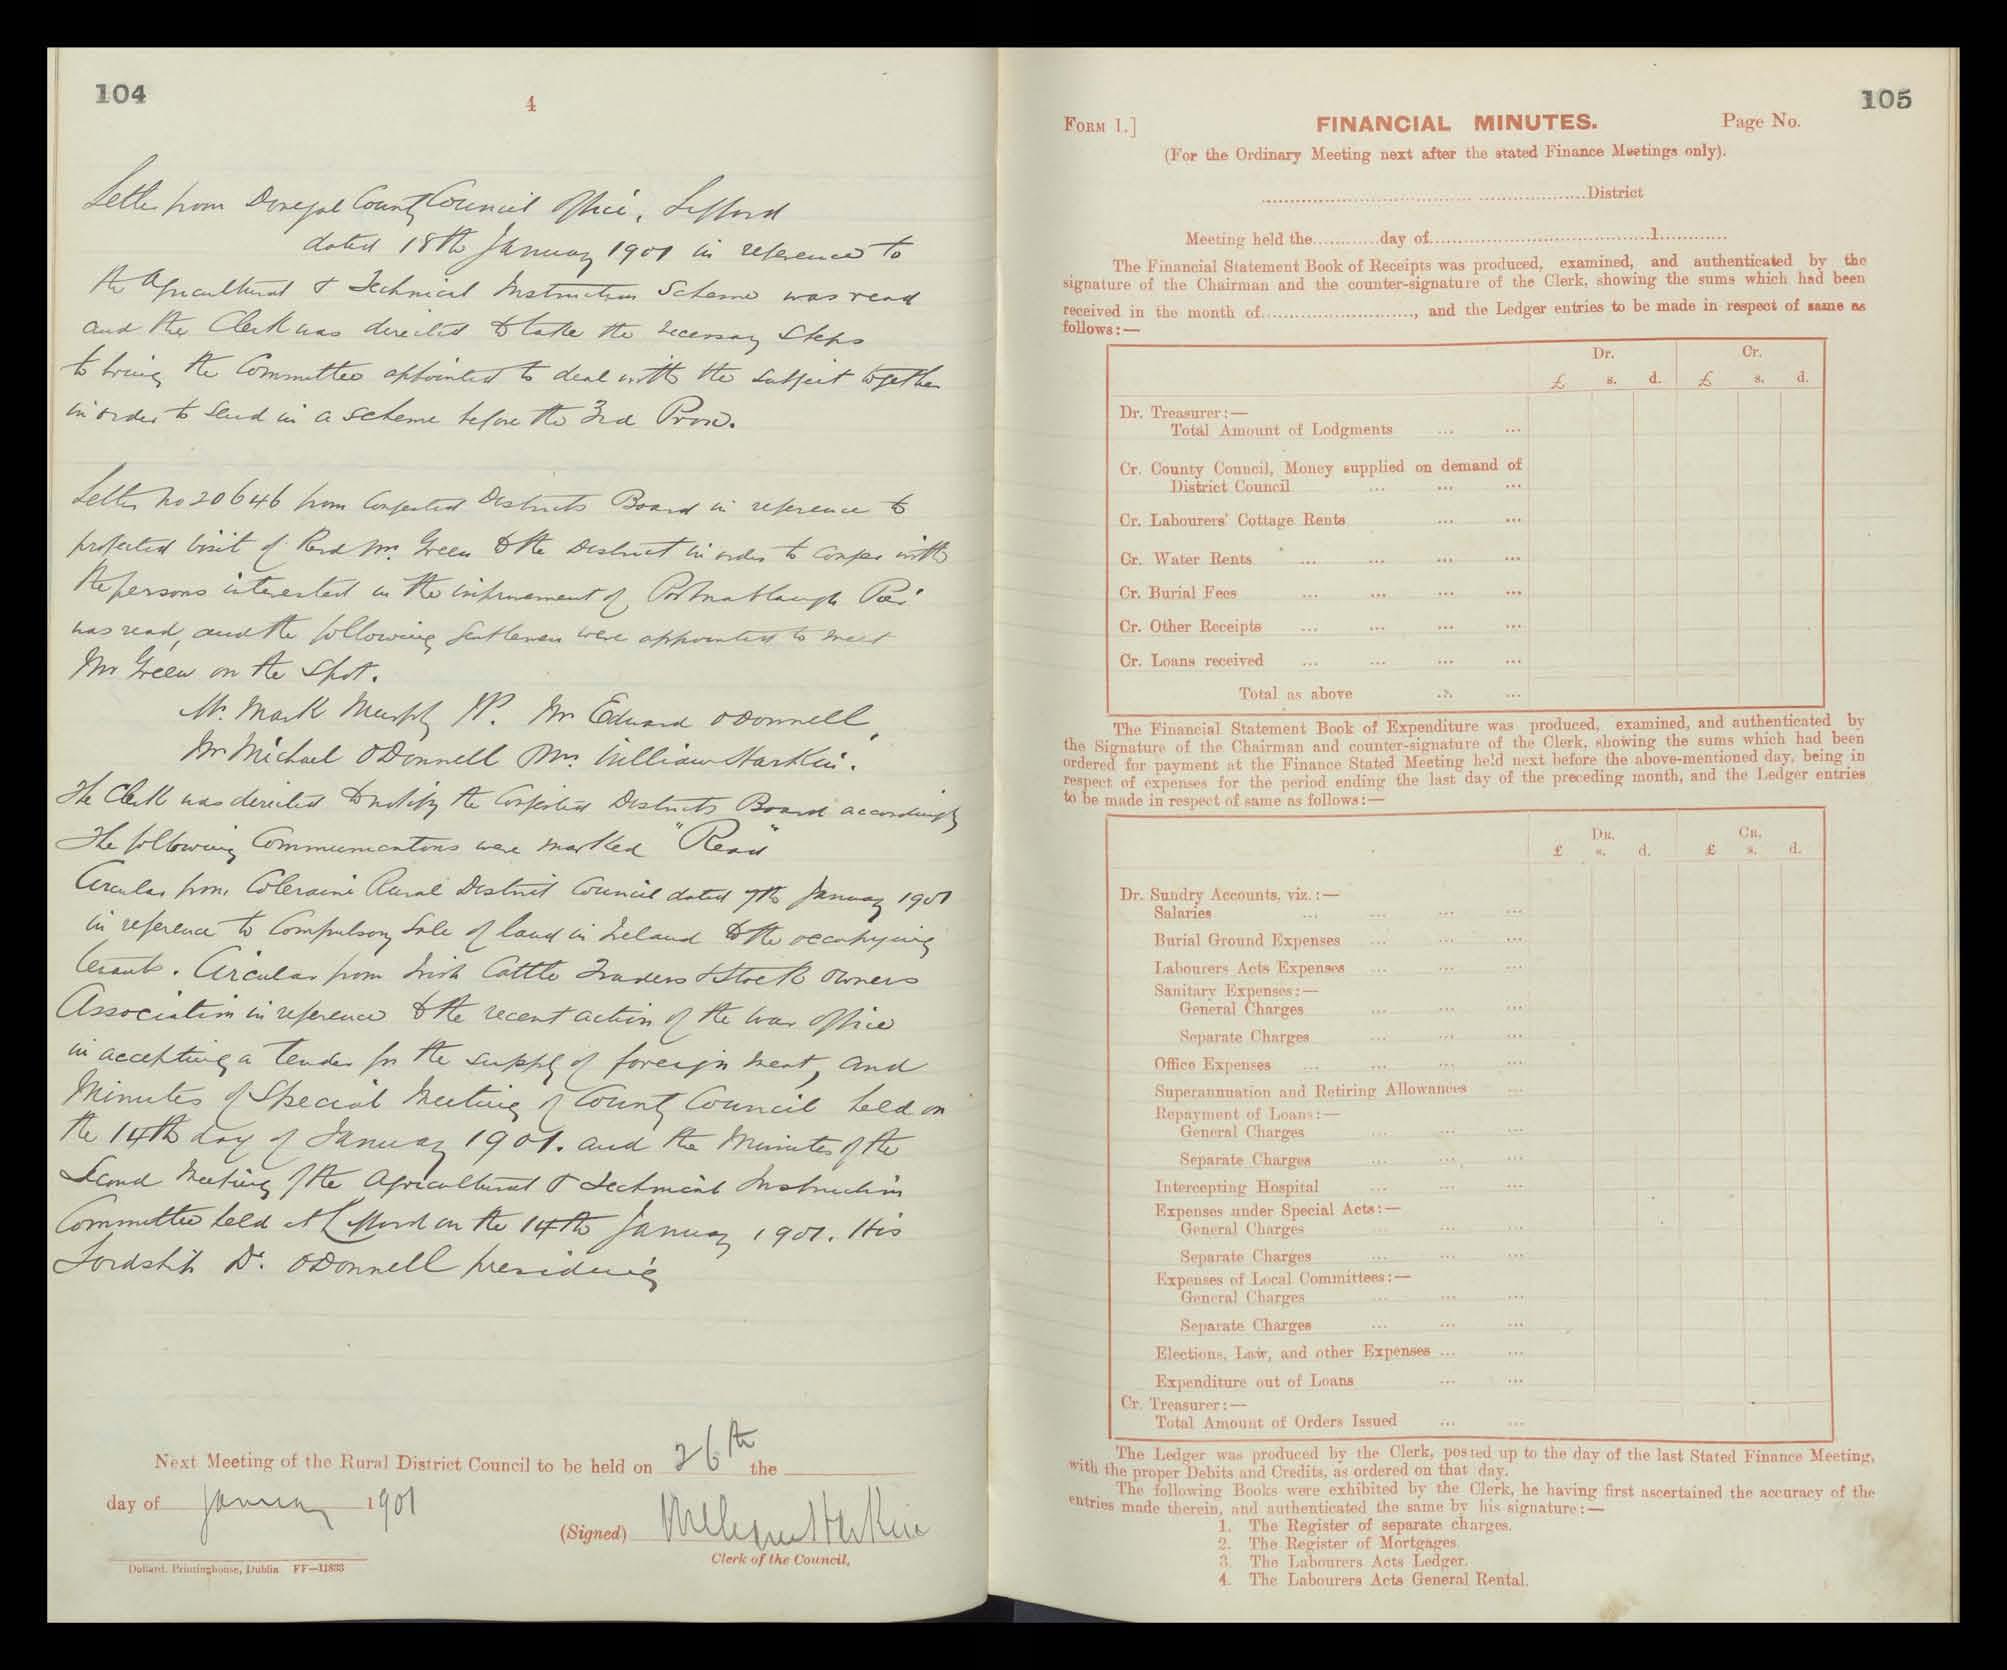 104
4
Letter from Donegal County Council Office, Lifford
dated 18th January 1901 in reference to
the Agricultural & Technical Instruction Scheme was read
and the Clerk was directed to take the necessary steps
to bring the Committee appointed to deal with the subject together
in order to send in a scheme before the 3rd Prox.
Letter No 20646 from Congested Districts Board in reference to
projected visit of Revd Mr. Green to the District in order to confer with
the persons interested in the improvement of Portnablaugh Pier
was read, and the following gentlemen were appointed to meet
Mr Green on the spot.
Mr. Mark Murphy JP. Mr Edward ODonnell,
Mr Michael ODonnell Mr. William Harkin.
The Clerk was directed to notify the Congested Districts Board accordingly
The following Communications were marked "Read"
Circular from Coleraine Rural District Council dated 7th January 1901
in reference to Compulsory Sale of land in Ireland to the occupying
tenants. Circular from Irish Cattle Traders & Stock Owners
Association in reference to the recent action of the War Office
in accepting a tender for the supply of foreign meat, and
Minutes of Special Meeting of County Council held on
the 14th day of January 1901. and the Minutes of the
Second Meeting of the Agricultural & Technical Instruction
Committee held at Lifford on the 14th January 1901. His
Lordship Dr. ODonnell presiding
Next Meeting of the Rural District Council to be held on 26th the
day of January 1901
(Signed) William Harkin
Clerk of the Council,
Dollard, Printinghouse, Dublin FF—11833
105
FORM 1.] FINANCIAL MINUTES. Page No.
(For the Ordinary Meeting next after the stated Finance Meetings only).
District
Meeting held the............day of........................................1............
The Financial Statement Book of Receipts was produced, examined, and authenticated by the
signature of the Chairman and the counter-signature of the Clerk, showing the sums which had been
received in the month of..........................., and the Ledger entries to be made in respect of same as
follows:—
Dr. Cr.
£ s. d. £ s. d.
Dr. Treasurer:—
Total Amount of Lodgments ... ...
Cr. County Council, Money supplied on demand of
District Council ... ... ...
Cr. Labourers' Cottage Rents ... ...
Cr. Water Rents ... ... ... ...
Cr. Burial Fees ... ... ... ...
Cr. Other Receipts ... ... ... ...
Cr. Loans received ... ... ... ...
Total as above ... ...
The Financial Statement Book of Expenditure was produced, examined, and authenticated by
the Signature of the Chairman and counter-signature of the Clerk, showing the sums which had been
ordered for payment at the Finance Stated Meeting held next before the above-mentioned day, being in
respect of expenses for the period ending the last day of the preceding month, and the Ledger entries
to be made in respect of same as follows:—
DR. CR.
£ s. d. £ s. d.
Dr. Sundry Accounts, viz.:—
Salaries ... ... ... ...
Burial Ground Expenses ... ... ...
Labourers Acts Expenses ... ... ...
Sanitary Expenses:—
General Charges ... ... ...
Separate Charges ... ... ...
Office Expenses ... ... ... ...
Superannuation and Retiring Allowances ...
Repayment of Loans:—
General Charges ... ... ...
Separate Charges ... ... ...
Intercepting Hospital ... ... ...
Expenses under Special Acts:—
General Charges ... ... ...
Separate Charges ... ... ...
Expenses of Local Committees:—
General Charges ... ... ...
Separate Charges ... ... ...
Elections, Law, and other Expenses ... ...
Expenditure out of Loans ... ...
Cr. Treasurer:—
Total Amount of Orders Issued ... ...
The Ledger was produced by the Clerk, posted up to the day of the last Stated Finance Meeting,
with the proper Debits and Credits, as ordered on that day.
The following Books were exhibited by the Clerk, he having first ascertained the accuracy of the
entries made therein, and authenticated the same by his signature:—
1. The Register of separate charges.
2. The Register of Mortgages.
3. The Labourers Acts Ledger.
4. The Labourers Acts General Rental.